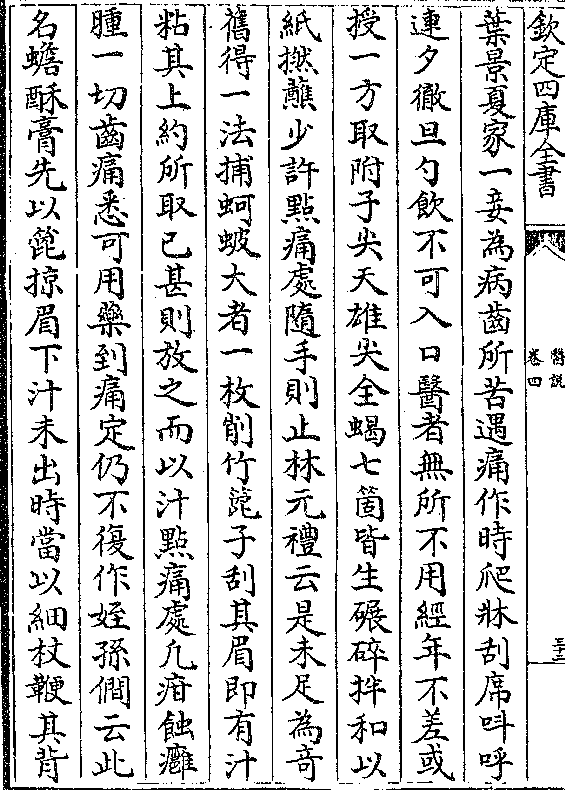 欽定四庫全書
醫說
卷四
三十二
葉景夏家一妾為病齒所苦遇痛作時爬牀刮席呌呼
連夕徹旦勺飲不可入口醫者無所不用經年不差或
授一方取附子尖天雄尖全蝎七箇皆生碾碎拌和以
紙撚蘸少許點痛處隨手則止林元禮云是未足為奇
舊得一法捕蚵蚾大者一枚削竹篦子刮其眉即有汁
粘其上約所取已甚則放之而以汁點痛處凡疳蝕癰
腫一切齒痛悉可用藥到痛定仍不復作姪孫僩云此
名蟾酥膏先以篦掠眉下汁未出時當以細杖鞭其背